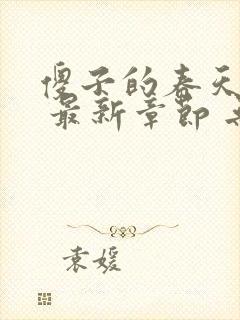 傻子的春天
最新章節
袁媛